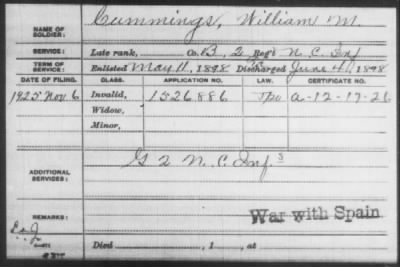 NAME OF SOLDIER: Cummings, William M.
SERVICE: Late rank, Co. B, 2 Reg't N.C. Inf
TERM OF SERVICE: Enlisted May 11, 1898 Discharged June 4, 1898
DATE OF FILING. CLASS. APPLICATION NO. LAW. CERTIFICATE NO.
1925 Nov. 6 Invalid, 1526886 A-12-17-26
Widow,
Minor,
ADDITIONAL SERVICES: G 2 N.C. Inf. S
REMARKS: War with Spain
Died , 1 , at